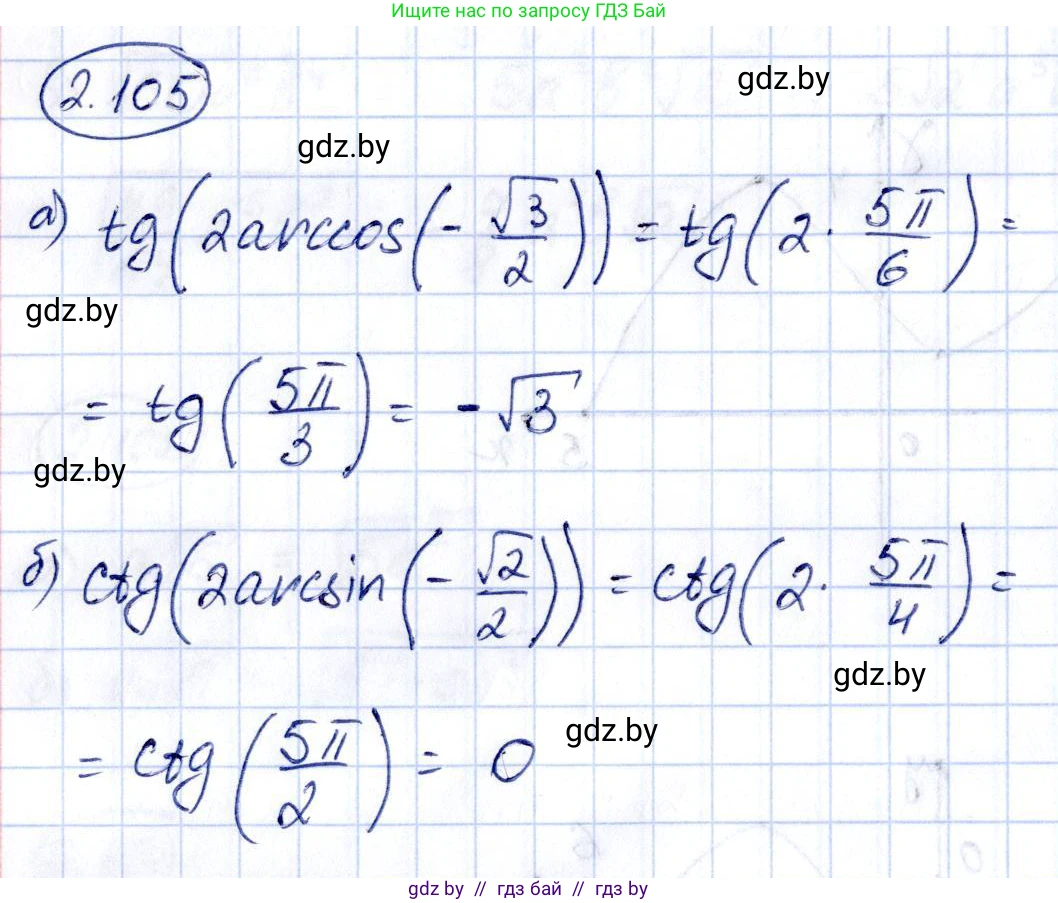 Ищите нас по запросу ГДЗ Бай
2.105
gdz.by
gdz.by
а) tg(2arccos(-√3/2)) = tg(2·5π/6) =
gdz.by
= tg(5π/3) = -√3
gdz.by
б) ctg(2arcsin(-√2/2)) = ctg(2·5π/4) =
gdz.by
= ctg(5π/2) = 0
gdz.by
gdz by // гдз бай // гдз by